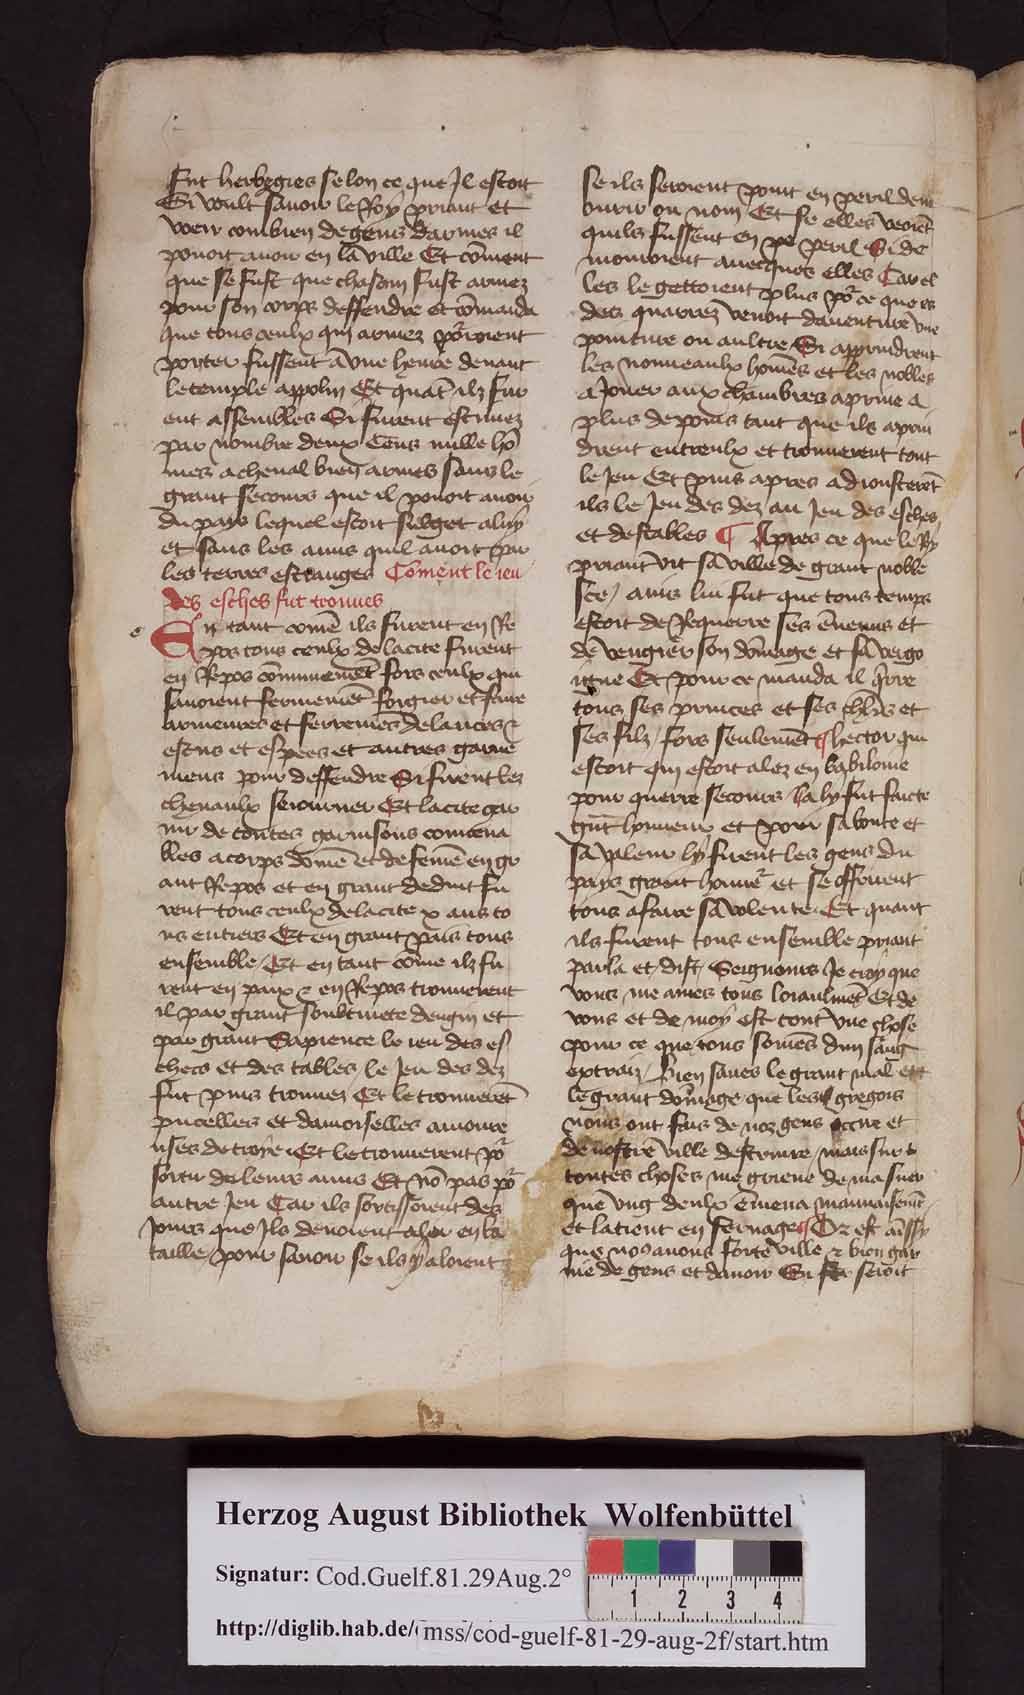 Fut herbegies selon ce que Il estoit
Si voult sauoir le Roy priant et
veir combien de gens darmes il
pouoit auoir en la ville Et cōment
que se fust que chascun fust armez
pour son corps deffendre et cōmanda
que tous ceulx qui armez poʳroient
porter fussent a vne heure deuant
le temple appolin Et quāt ilz fur
ent assembles Si furent estimez
par nombre deux Cens mille hō
mes a cheual bien armes sans le
grant secours que il pouoit auoir
du pais lequel estoit subget a luy
et sans les amis quil auoit par
les terres estranges Cōment le ieu
des esches fut trouues
e
En tant cōme ils furent en Re
pos tous ceulx de la cite furent
en Repos cōmunemēt fors ceulx qui
sauoient fermemēt forgier et faire
armeures et ferremēs de lances ⁊
escus et espees et autres garne
mens pour deffendre Si furent les
cheuaulx seiourner Et la cite gar
nir de toutes garnisons conuena
bles a corps dōme et de femē en gr
ant Repos et en grant deduit fu
rent tous ceulx de la cite x ans to
us entiers Et en grant pais tous
ensemble / Et en tant cōme ilz fu
rent en paix ⁊ en Repos trouuerent
il par grant soubtiuete dengin et
par grant Sapience le ieu des es
checs et des tables le Jeu des dez
fut puis trouuez Et le trouuerēt
pucelles et damoiselles amoure
uses de troye Et le trouuerent poʳ
sortir de leurs amis Et nō pas poʳ
autre Jeu Car ils sortissoient des
Jours que Ils deuoient aler en ba
taille / pour sauoir se ils y aloient
se ils seroient point en peril dem
ourir ou nom Et se elles veoiēt
quils fussent en pe peril Si de
mouroient auecques elles Car el
les le gettoient plus poʳ ce que es
dez quarrez venoit dauenture vne
pointure ou aultre Si apprindrent
les nouueaulx homēs et les nobles
a Jouer aux chambres a prime a
plus de poins tant que ils aprin
drent entreulx et trouuerent tout
le Jeu Et puis apres adiousterēt
ils le Jeu des dez au Jeu des esches
et des tables ¶ Apres ce que le Roy
priant vit sa ville de grant noble
sce / auis lui fut que tous temps
estoit de Requerre ses ēnemis et
de vengier son dōmage et sa vergo
igne Et pour ce manda il q̄rre
tous ses princes et ses chl̄rs et
ses filz / fors seulemēt hector qui
estoit qui estoit alez en babilonie
pour querre secours / la ly fut faicte
gūt honneur et pour sa bonte et
sa valeur ly firent les gens du
pays grant honneʳ et se offrirent
tous a faire sa volente Et quant
ils furent tous ensemble priant
parla et dist / Seigneurs Je croy que
vous me ames tous loiaulmēt Et de
vous et de moy est tout vne chose
pour ce que tous somēs dun sang
extraiz / Bien saues le grant mal et
le grant dōmage que les gregois
nous ont fais de noz gens occire et
de nostre ville destruire / mais sur
toutes choses me grieue de ma suer
que vng deulx ēmena mauuaisemēt
et la tient en seruage Or est aissy
que noꝯ auons forte ville ⁊ bien gar
nie de gens et dauoir Si seroit
Herzog August Bibliothek Wolfenbüttel
Signatur: Cod.Guelf.81.29Aug.2°
1 2 3 4
http://diglib.hab.de/ mss/cod-guelf-81-29-aug-2f/start.htm